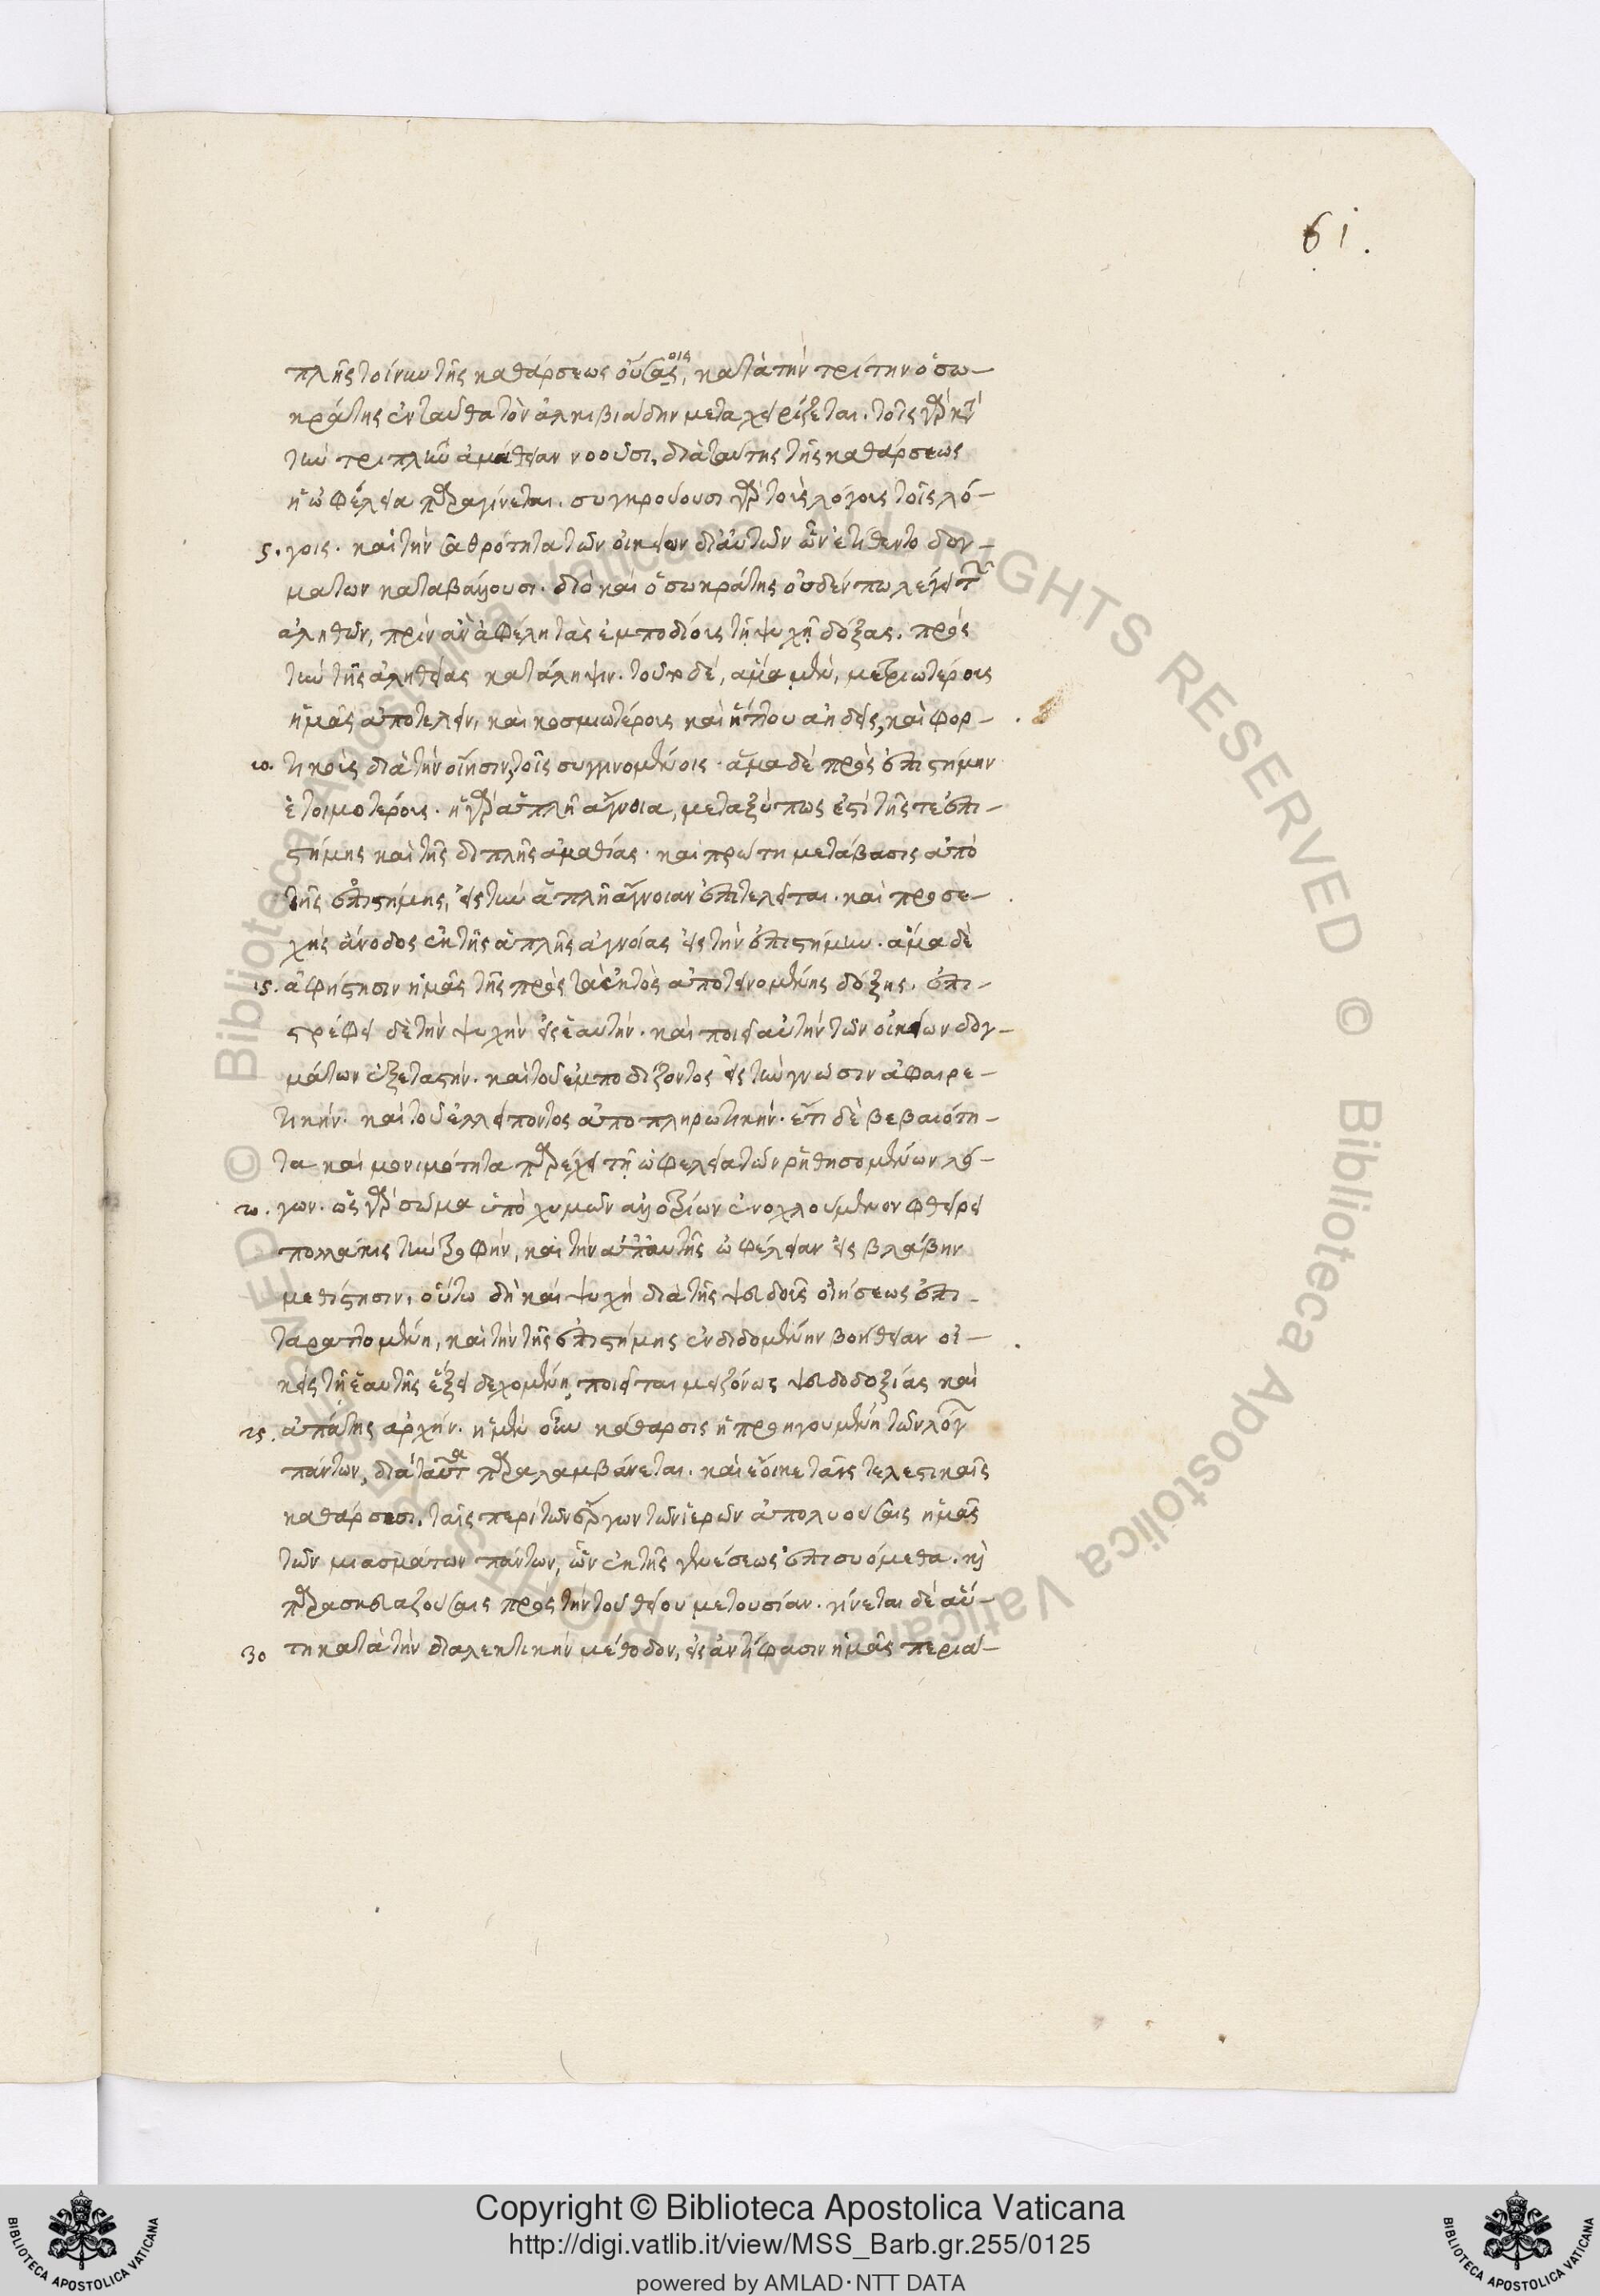 61.
πλῆς τοίνυν τῆς καθάρσεως οὔσης, κατὰ τὴν τρίτην ὁ σω-
κράτης ἐνταῦθα τὸν ἀλκιβιάδην μεταχειρίζεται. τοῖς γὰρ κτ
τὴν τριπλῆν ἀμάθειαν νοοῦσι, διὰ ταύτης τῆς καθάρσεως
ἡ ὠφέλεια παραγίνεται. συγκρούουσι γὰρ τοῖς λόγοις τοῖς λό-
5. γοις. καὶ τὴν σαθρότητα τῶν οἰκείων δι' αὐτῶν ὧν ἐτίθεντο δογ-
μάτων καταβαίνουσι. διὸ καὶ ὁ σωκράτης οὐδέν πω λέγει τῶν
ἀληθῶν, πρὶν ἂν ἀφέλῃ τὰς ἐμποδίοις τῇ ψυχῇ δόξας. πρὸς
τὴν τῆς ἀληθείας κατάληψιν. τοῦτο δὲ, ἅμα μὲν, μετριωτέροις
ἡμᾶς ἀποτελεῖν, καὶ κοσμιωτέροις καὶ ἥττον ἀηδεῖς, καὶ φορ-
10. τικοὶς διὰ τὴν οἴησιν τοῖς συγγινομένοις. ἅμα δὲ πρὸς ἐπιστήμην
ἑτοιμοτέροις. ἡ γὰρ ἁπλῆ ἄγνοια, μεταξύ πως ἐστὶ τῆς τε ἐπι-
στήμης καὶ τῆς διπλῆς ἀμαθίας. καὶ πρώτη μετάβασις ἀπὸ
τῆς ἐπιστήμης, εἰς τὴν ἁπλῆ ἄγνοιαν ἐπιτελεῖται. καὶ προσε-
χὴς ἄνοδος ἐκ τῆς ἁπλῆς ἀγνοίας εἰς τὴν ἐπιστήμην. ἅμα δὲ
15. ἀφίστησιν ἡμᾶς τῆς πρὸς τὰ ἐκτὸς ἀποτεινομένης δόξης. ἐπι-
στρέφει δὲ τὴν ψυχὴν εἰς ἑαυτὴν. καὶ ποιεῖ αὐτὴν τῶν οἰκείων δογ-
μάτων ἐξεταστήν. καὶ τοῦ ἐμποδίζοντος εἰς τὴν γνώσιν ἀφαιρε-
τικήν. καὶ τοῦ ἐλλείποντος ἀποπληρωτικήν. ἔτι δὲ βεβαιότη-
τα καὶ μονιμότητα παρέχει τῇ ὠφελείᾳ τῶν ῥηθησομένων λό-
20. γων. ὡς γὰρ σῶμα ὑπὸ χυμῶν ἀλλοτρίων ἐνοχλούμενον φθείρει
πολλάκις τὴν τροφήν, καὶ τὴν ἀπ' αὐτῆς ὠφέλειαν εἰς βλάβην
μεθίστησιν, οὕτω δὴ καὶ ψυχὴ διὰ τῆς ψευδοῖς οἰήσεως ἐπι-
ταραττομένη, καὶ τὴν τῆς ἐπιστήμης ἐνδιδομένην βοήθειαν οἰ-
κεῖς τῇ ἑαυτῆς ἕξει δεχομένη ποιεῖται μείζονος ψευδοδοξίας καὶ
25. ἀπάτης ἀρχήν. ἡ μὲν οὖν κάθαρσις ἡ προηγουμένη τῶν λόγ
πάντων, διὰ ταῦτα παραλαμβάνεται. καὶ ἔοικε ταῖς τελεστικαῖς
καθάρσεσι. ταῖς περὶ τῶν ἔργων τῶν ἱερῶν ἀπολυούσαις ἡμᾶς
τῶν μιασμάτων πάντων, ὧν ἐκ τῆς γενέσεως ἐπισυόμεθα. καὶ
παρασκευαζούσαις πρὸς τὴν τοῦ θείου μετουσίαν. γίνεται δὲ αὕ-
30 τη κατὰ τὴν διαλεκτικὴν μέθοδον, εἰς ἀντίφασιν ἡμᾶς περιά-
© Biblioteca Apostolica Vaticana ALL RIGHTS RESERVED © Biblioteca Apostolica Vaticana ALL RIGHTS RESERVED
Copyright © Biblioteca Apostolica Vaticana
http://digi.vatlib.it/view/MSS_Barb.gr.255/0125
powered by AMLAD·NTT DATA
BIBLIOTECA APOSTOLICA VATICANA
BIBLIOTECA APOSTOLICA VATICANA